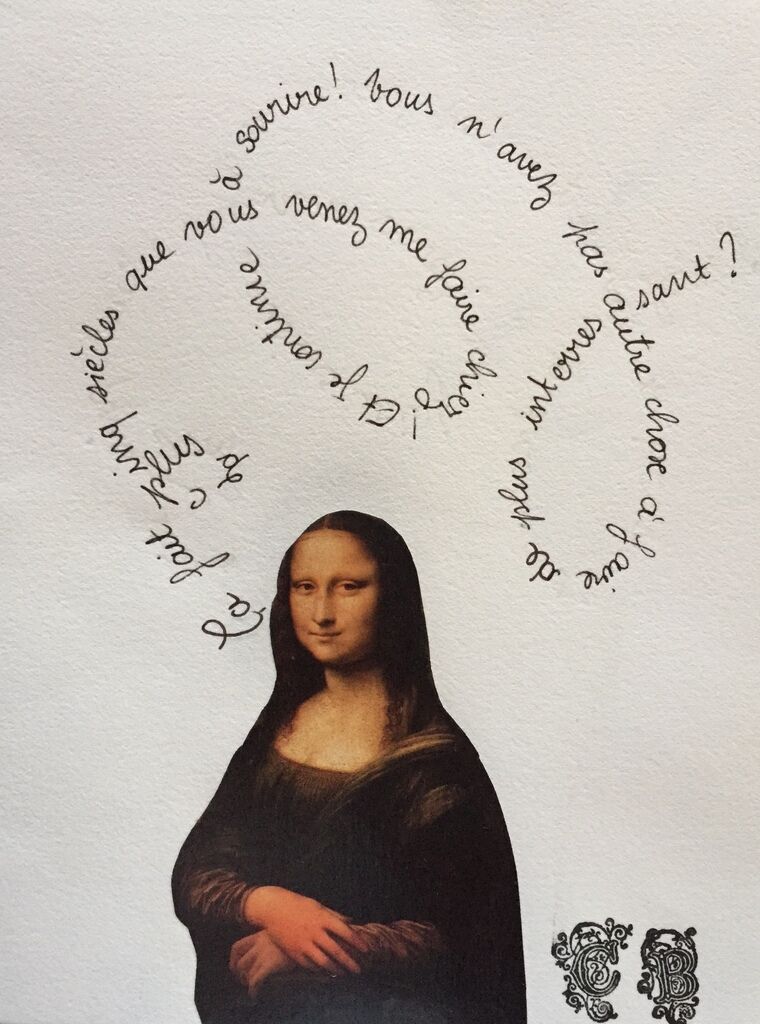 Ça fait plus de cinq siècles que vous venez me faire chiez! Et je continue à sourire! Vous n'avez pas autre chose à faire de plus interressant ?
C B